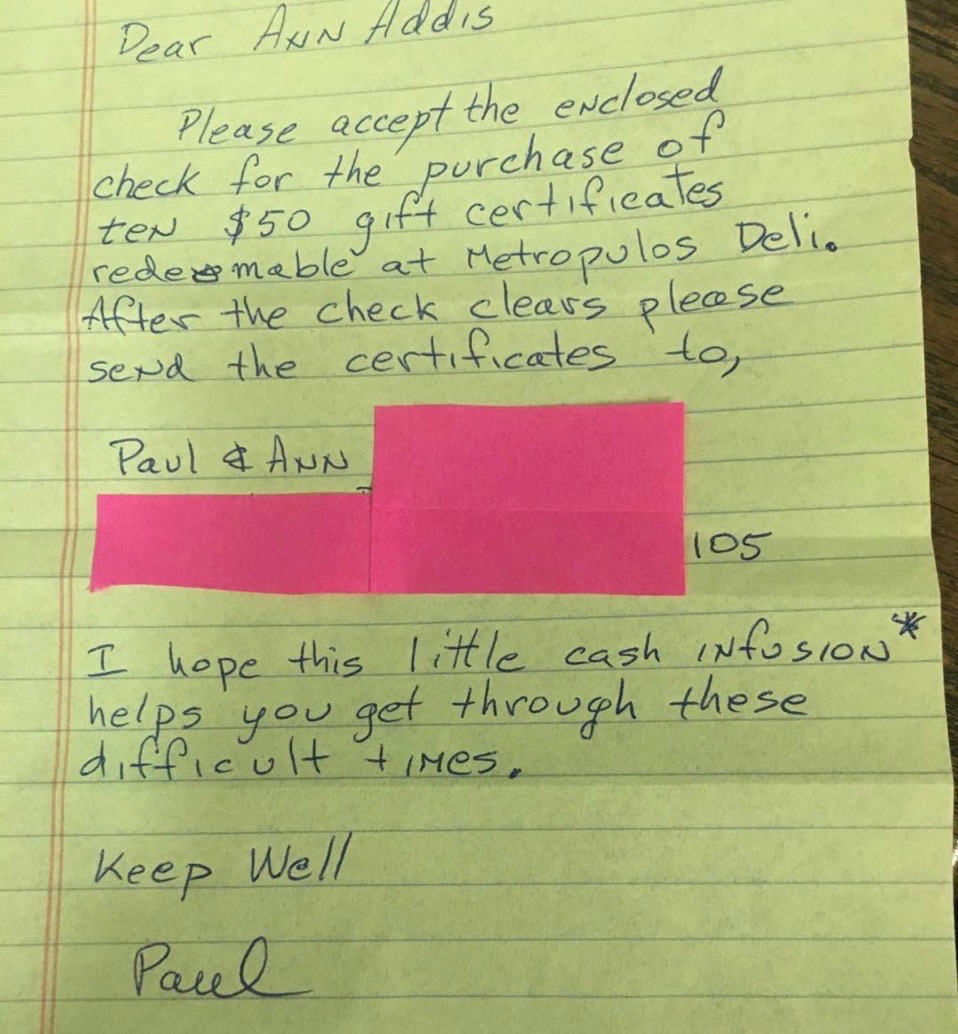 Dear Ann Addis
Please accept the enclosed
check for the purchase of
ten $50 gift certificates
redeemable at Metropulos Deli.
After the check clears please
send the certificates to,
Paul & Ann
105
I hope this little cash infusion*
helps you get through these
difficult times.
Keep Well
Paul